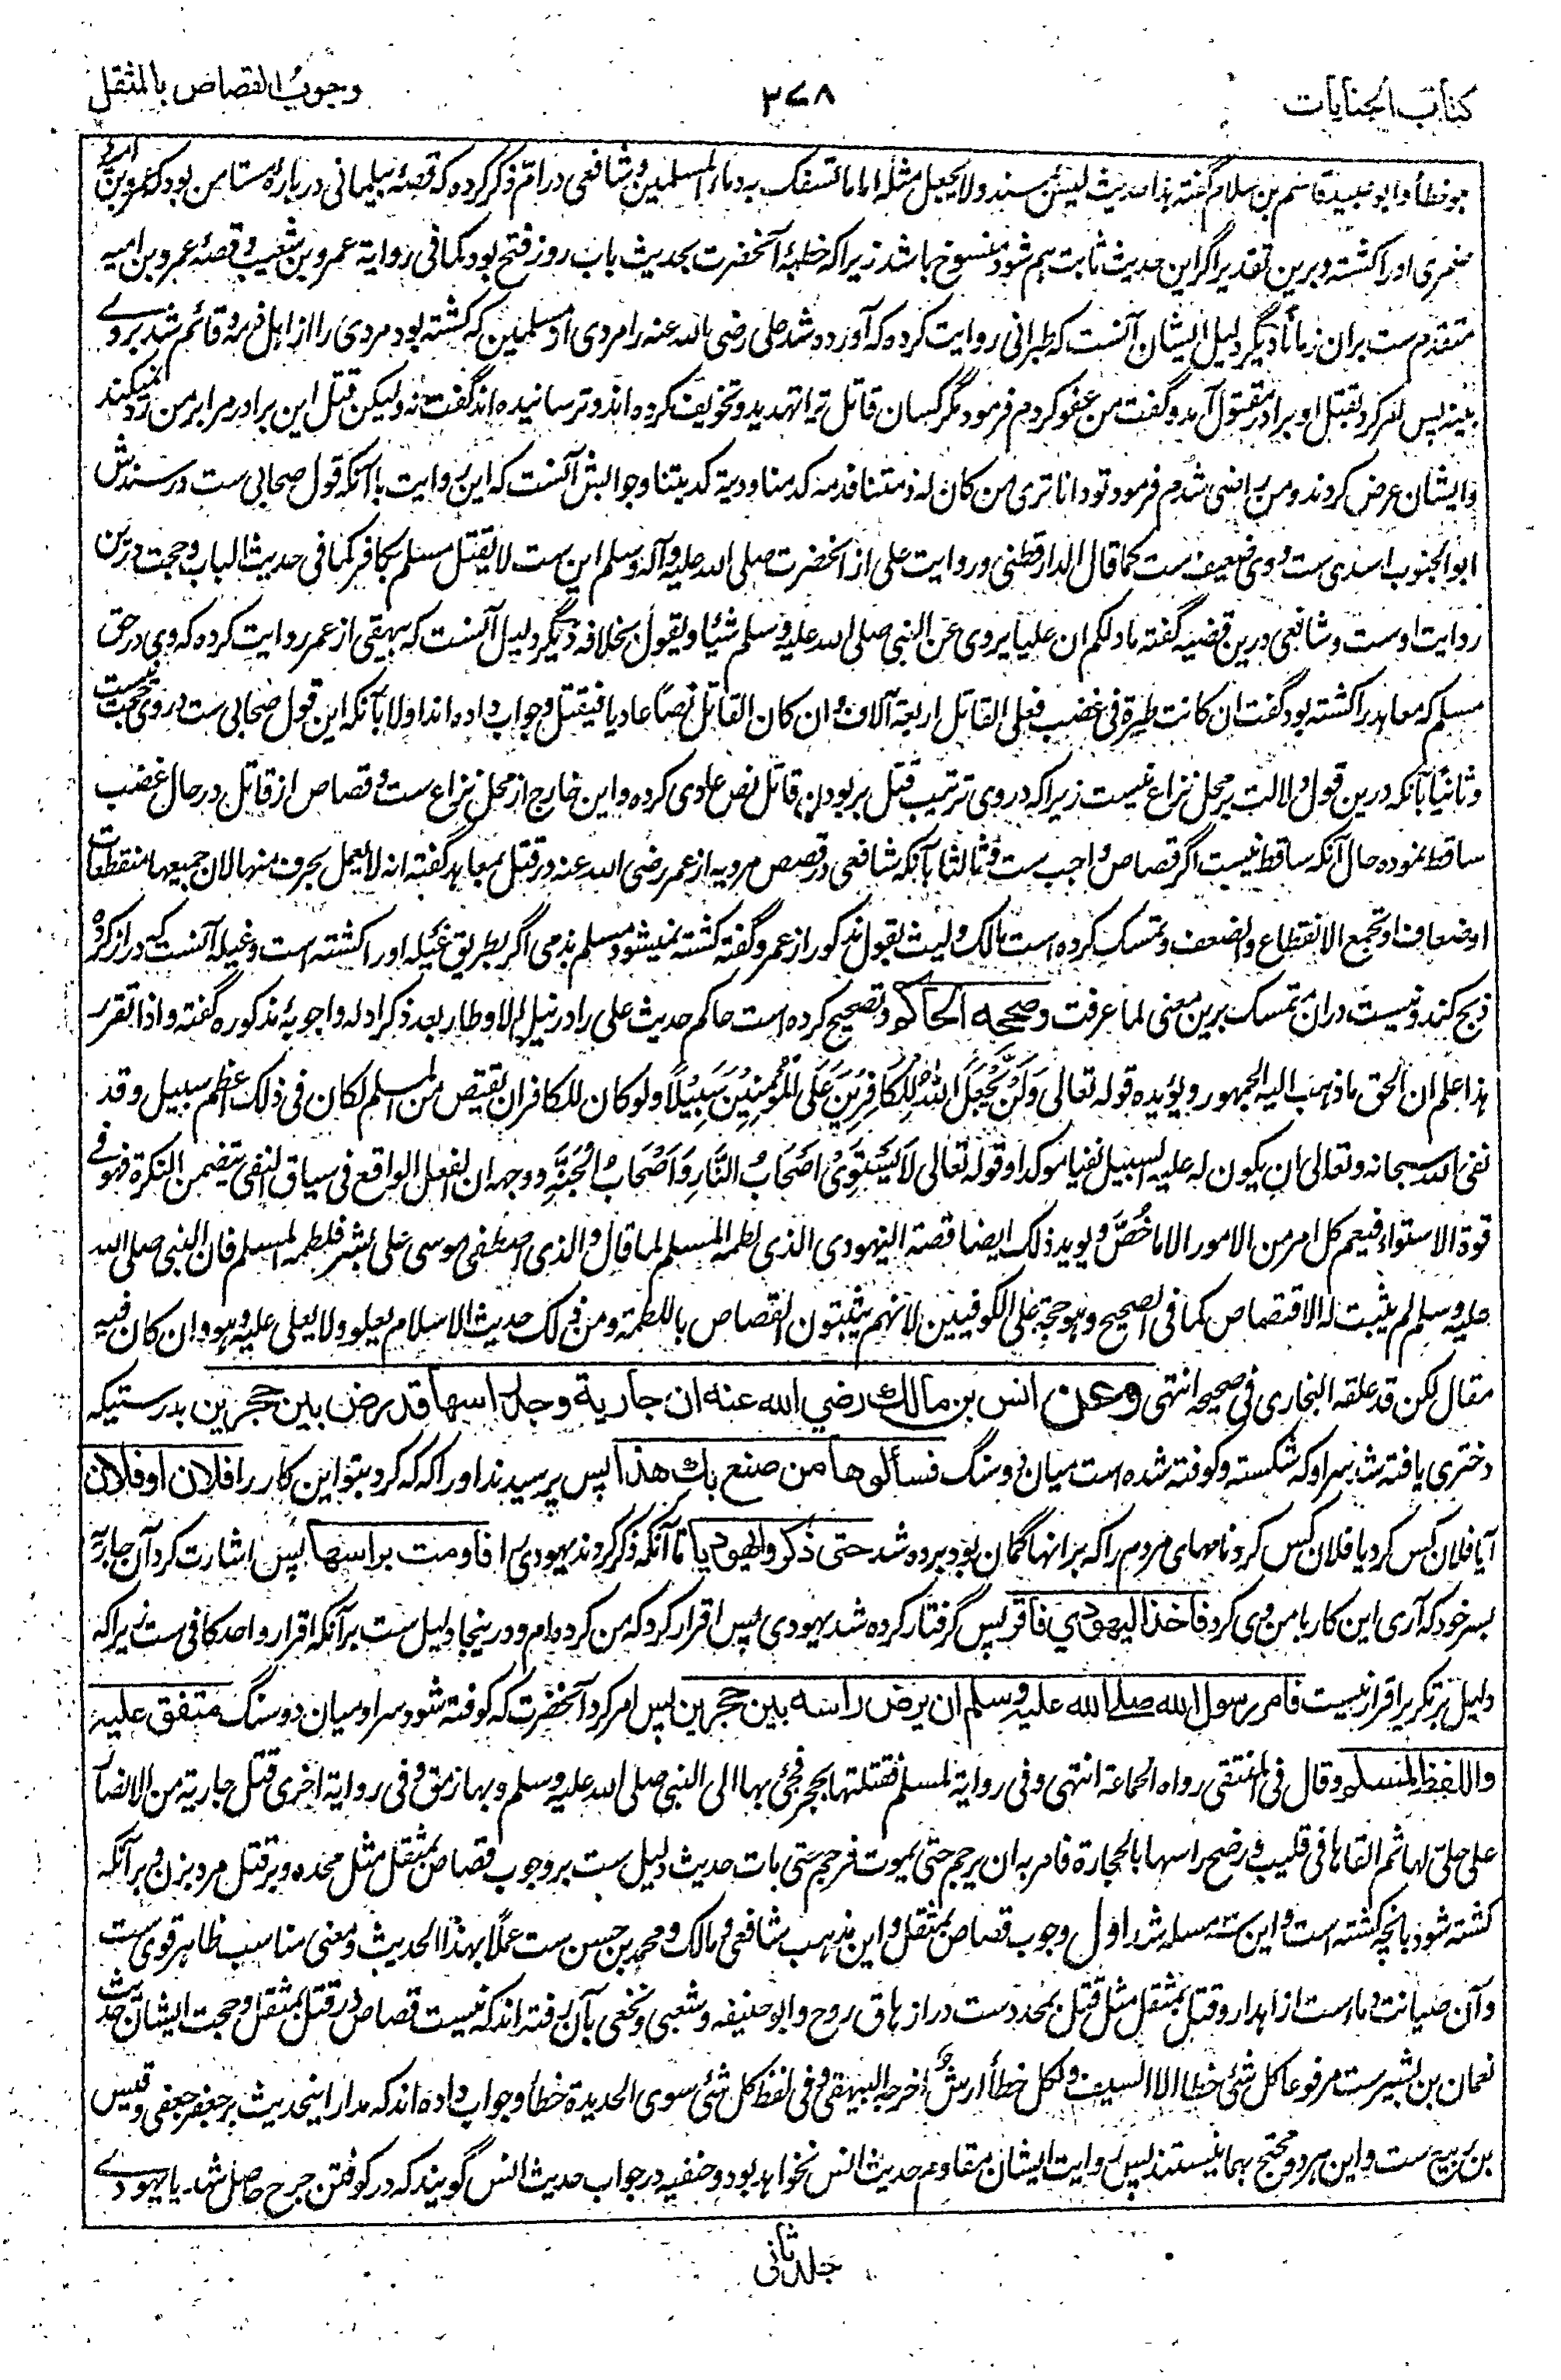 کتاب الجنایات
۳۷۸
وجوب القصاص بالمثقل
ہو خطأ و ابو عبید قاسم بن سلام گفتہ ہذا حدیث لیس بمسند ولا یجعل مثلہ اماما تسفک بہ دماء المسلمین و شافعی در ام ذکر کردہ کہ قصۂ بیلمانی دربارۂ مستامن بود کہ عمرو بن امیہ
ضمری اورا کشتہ و برین تقدیر اگر این حدیث ثابت ہم شود منسوخ باشد زیرا کہ خطبۂ آنحضرت بحدیث باب روز فتح بود کما فی روایۃ عمرو بن شعیب و قصۂ عمرو بن امیہ
متقدم ست بران زمانا دیگر دلیل ایشان آنست کہ طبرانی روایت کردہ کہ آوردہ شد علی رضی اللہ عنہ را مردی از مسلمین کہ کشتہ بود مردی را از اہل ذمہ و قائم شد بروے
بینہ پس امر کرد بقتل او برادر مقتول آمد و گفت من عفو کردم فرمود مگر کسان قاتل ترا تہدید و تخویف کردہ اند و ترسانیدہ اند گفت نہ ولیکن قتل این برادر مرا بر من رد نمیکند
و ایشان عرض کردند و من راضی شدم فرمود تو داناتری من کان لہ ذمتنا فدمہ کدمنا و دیتہ کدیتنا و جوابش آنست کہ این روایت باآنکہ قول صحابی ست در سندش
ابو الجنوب اسدی ست و وی ضعیف ست کما قال الدارقطنی و روایت علی از آنحضرت صلی اللہ علیہ وآلہ وسلم این ست لا یقتل مسلم بکافر کما فی حدیث الباب و حجت درین
روایت اوست و شافعی درین قضیہ گفتہ ما دلکم ان علیا یروی عن النبی صلی اللہ علیہ وسلم شیئا و یقول بخلافہ دیگر دلیل آنست کہ بیہقی از عمر روایت کردہ کہ وی در حق
مسلم کہ معاہد را کشتہ بود گفت ان کانت طیرۃ فی غضب فعلی القاتل اربعۃ آلاف و ان کان القاتل لصا عادیا فیقتل و جواب دادہ اند اولا بآنکہ این قول صحابی ست در وی حجت نیست
و ثانیا بآنکہ درین قول دلالت بر محل نزاع نیست زیرا کہ در وی ترتیب قتل بر بودن قاتل لص عادی کردہ و این خارج از محل نزاع ست و قصاص از قاتل در حال غضب
ساقط نمودہ حال آنکہ ساقط نیست اگر قصاص واجب ست و ثالثا بآنکہ شافعی در قصص مرویہ از عمر رضی اللہ عنہ در قتل معاہد گفتہ انہ لا یعمل بحرف منہا لان جمیعہا منقطعات
او ضعاف او تجمع الانقطاع والضعف و تمسک کردہ است مالک و لیث بقول مذکور از عمر و گفتہ کشتہ نمیشود مسلم بذمی اگر بطریق غیلہ اورا کشتہ است و غیلہ آنست کہ دراز کردہ
ذبح کند و نیست دران تمسک برین معنی لما عرفت وصححہ الحاکم و تصحیح کردہ است حاکم حدیث علی را در نیل الاوطار بعد ذکر ادلہ و اجوبۂ مذکورہ گفتہ و اذا تقرر
ہذا علم ان الحق ما ذہب الیہ الجمہور و یؤیدہ قولہ تعالی وَلَنْ یَّجْعَلَ اللّٰہُ لِلْکَافِرِیْنَ عَلَی الْمُؤْمِنِیْنَ سَبِیْلًا ولو کان للکافر ان یقتص من المسلم لکان فی ذلک اعظم سبیل و قد
نفی اللہ سبحانہ و تعالی ان یکون لہ علیہ السبیل نفیا موکدا و قولہ تعالی لَا یَسْتَوِیْ اَصْحَابُ النَّارِ وَاَصْحَابُ الْجَنَّۃِ و وجہہ ان الفعل الواقع فی سیاق النفی یتضمن النکرۃ فہو فے
قوۃ لا استواء فیعم کل امر من الامور الا ما خُصَّ و یوید ذلک ایضا قصۃ الیہودی الذی لطمہ المسلم لما قال والذی اصطفی موسی علی البشر فلطمہ المسلم فان النبی صلی اللہ
علیہ وسلم لم یثبت لہ الاقتصاص کما فی الصحیح و ہو حجۃ علی الکوفیین لانہم یثبتون القصاص باللطمۃ و من ذلک حدیث الاسلام یعلو ولا یعلی علیہ و ہو و ان کان فیہ
مقال لکن قد علقہ البخاری فی صحیحہ انتہی وعن انس بن مالک رضی اللہ عنہ ان جاریۃ وجد راسہا قد رض بین حجرین بدرستیکہ
دختری یافتہ شد سر او کہ شکستہ و کوفتہ شدہ است میان دو سنگ فسألوہا من صنع بک ہذا پس پرسیدند اورا کہ کہ کرد بتو این کار را فلان او فلان
آیا فلان کس کرد یا فلان کس کرد نامہای مردم را کہ بر انہا گمان بود بردہ شد حتی ذکروا یہودیا تا آنکہ ذکر کردند یہودی را فاومت براسہا پس اشارت کرد آن جاریہ
بسر خود کہ آری این کار با من وی کرد فاخذ الیہودی فاقر پس گرفتار کردہ شد یہودی پس اقرار کرد کہ من کردہ ام و درینجا دلیل ست بر آنکہ اقرار واحد کافی ست زیرا کہ
دلیل بر تکریر اقرار نیست فامر رسول اللہ صلی اللہ علیہ وسلم ان یرض راسہ بین حجرین پس امر کرد آنحضرت کہ کوفتہ شود سر او میان دو سنگ متفق علیہ
واللفظ لمسلم و قال فی المنتقی رواہ الجماعۃ انتہی و فی روایۃ لمسلم فقتلتہا بحجر فجئ بہا الی النبی صلی اللہ علیہ وسلم و بہا رمق و فی روایۃ اخری قتل جاریۃ من الانصار
علی حلی لہا ثم القاہا فی قلیب و رضخ راسہا بالحجارۃ فامر بہ ان یرجم حتی یموت فرجم حتی مات حدیث دلیل ست بر وجوب قصاص بمثقل مثل محدد و بر قتل مرد بزن و بر آنکہ
کشتہ شود بانچہ کشتہ است و این سہ مسلہ شد اول وجوب قصاص بمثقل و این مذہب شافعی و مالک و محمد بن حسن ست عملًا بہذا الحدیث و معنی مناسب ظاہر قوی ست
و آن صیانت دماء ست از اہدار و قتل بمثقل مثل قتل بمحدد ست در ازہاق روح و ابو حنیفہ و شعبی و نخعی بآن رفتہ اند کہ نیست قصاص در قتل بمثقل و حجت ایشان حدیث
نعمان بن بشیر ست مرفوعا کل شئی خطا الا السیف و لکل خطأ ارش اخرجہ البیہقی و فی لفظ کل شئی سوی الحدیدۃ خطأ و جواب دادہ اند کہ مدار این حدیث بر جعفر جعفی و قیس
بن ربیع ست و این ہر دو محتج بہما نیستند پس روایت ایشان مقاوم حدیث انس نخواہد بود و حنفیہ در جواب حدیث انس گویند کہ در کوفتن جرح حاصل شد یا یہودے
جلد ثانی